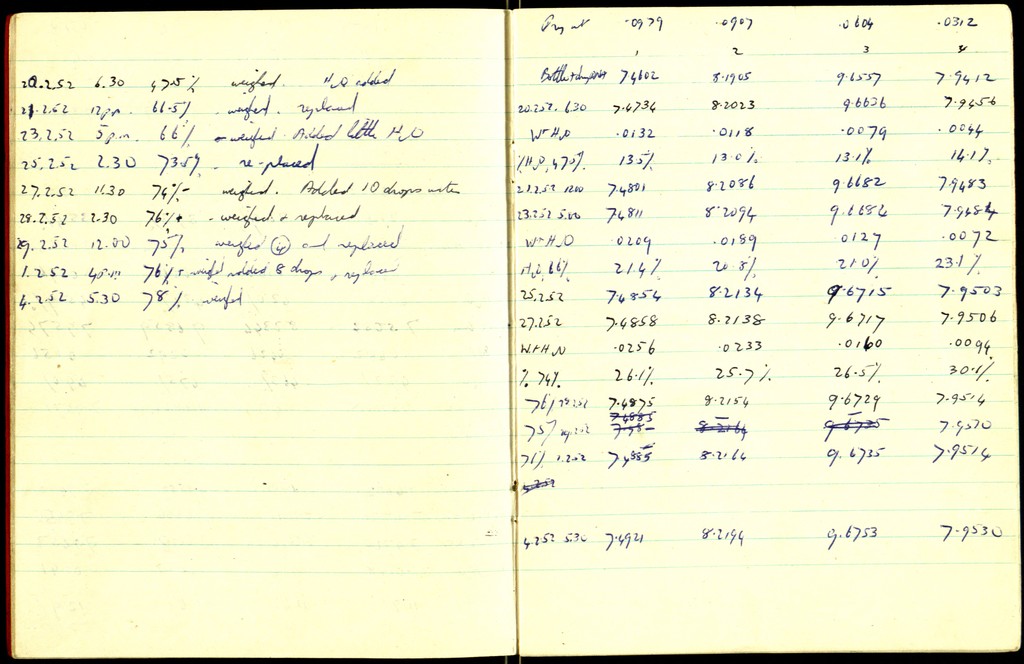 20.2.52 6.30 47.5% weighed. H2O added
21.2.52 12 p.m. 66.5% - weighed - replaced
23.2.52 5 p.m. 66% - weighed. Added little H2O
25.2.52 2.30 73.5% - re-placed
27.2.52 11.30 74%- weighed. Added 10 drops water
28.2.52 2.30 76%+ - weighed + replaced
29.2.52 12.00 75% weighed (4) and replaced
1.2.52 76%+ added 8 drops, replaced
4.2.52 5.30 78% weighed
Dry wt .0979 .0907 .0604 .0312
1 2 3 4
Bottle + dry wt 7.4602 8.1905 9.6557 7.9412
20.2.52. 6.30 7.4734 8.2023 9.6636 7.9456
Wt H2O .0132 .0118 .0079 .0044
% H2O, 47.5% 13.5% 13.0% 13.1% 14.1%
21.2.52 12.00 7.4801 8.2086 9.6682 7.9483
23.2.52 5.00 7.4811 8.2094 9.6684 7.9484
Wt H2O .0209 .0189 .0127 .0072
H2O, 66% 21.4% 20.8% 21.0% 23.1%
25.2.52 7.4854 8.2134 9.6715 7.9503
27.2.52 7.4858 8.2138 9.6717 7.9506
Wt H2O .0256 .0233 .0160 .0094
% 74% 26.1% 25.7% 26.5% 30.1%
76% 28.2.52 7.4875 8.2154 9.6729 7.9514
7.4885
75% 29.2.52 8.2164 9.6735 7.9510
76% 1.2.52 7.4885 8.2164 9.6735 7.9514
4.2.52
4.2.52 5.30 7.4921 8.2194 9.6753 7.9530